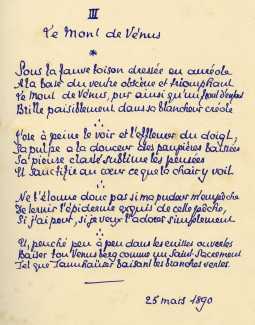 III
Le Mont de Vénus
*
Sous la fauve toison dressée en auréole
A la base du ventre obscène et triomphant
Le Mont de Vénus, pur ainsi qu'un front d'enfant
Brille paisiblement dans sa blancheur créole
J'ose à peine le voir et l'effleurer du doigt,
Sa pulpe a la douceur des paupières baissées
Sa pieuse clarté sublime les pensées
Et sanctifie au cœur ce que la chair y voit
Ne t'étonne donc pas si ma pudeur m'empêche
De ternir l'épiderme exquis de cette pêche,
Si j'ai peur, si je veux l'adorer simplement
Et, penché peu à peu dans les cuisses ouvertes
Baiser ton Venusberg comme un Saint Sacrement
Tel que Tannhäuser baisant les branches vertes.
25 mars 1890